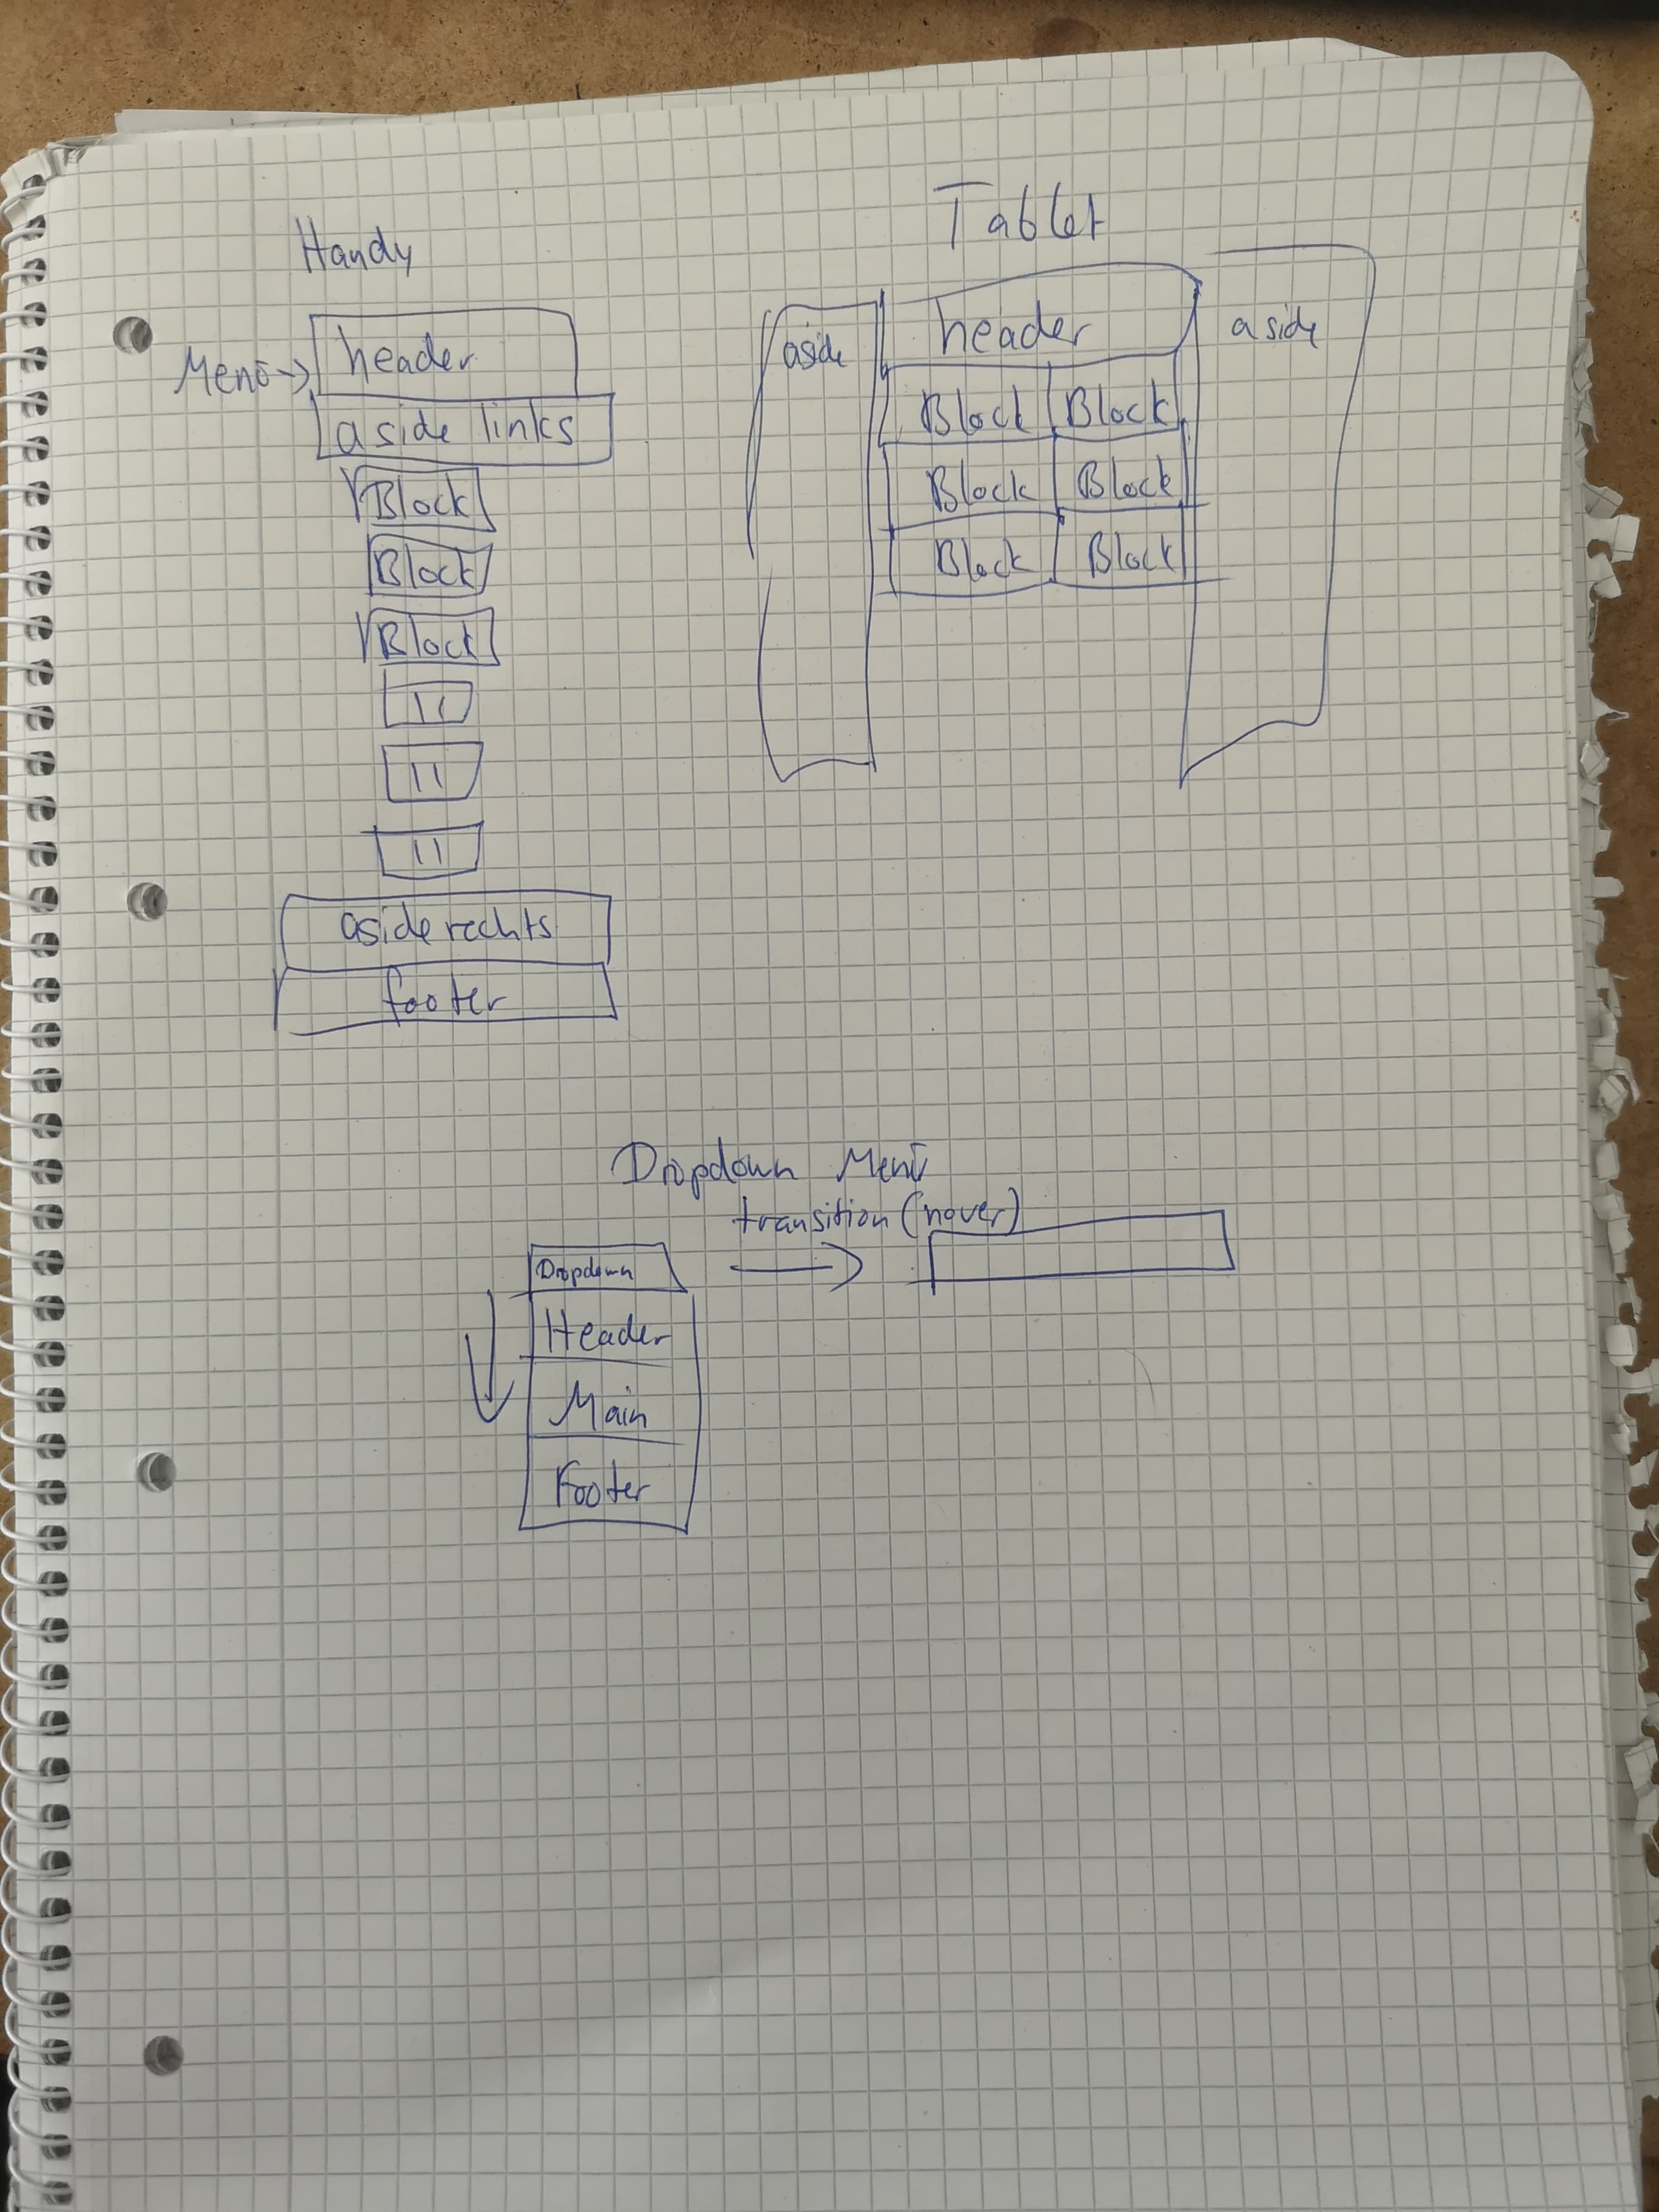 Handy
Menü → header
aside links
Block
Block
Block
11
11
11
aside rechts
footer
Tablet
aside
header
aside
Block Block
Block Block
Block Block
Dropdown Menü
transition (hover)
Dropdown
Header
Main
Footer